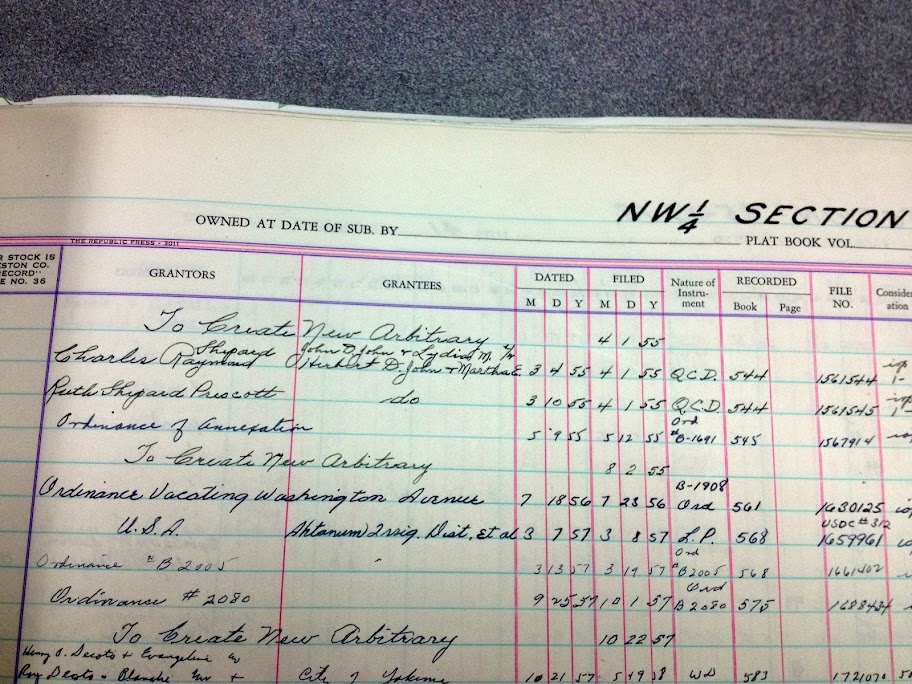 NW 1/4 SECTION
OWNED AT DATE OF SUB. BY
PLAT BOOK VOL.
THE REPUBLIC PRESS - 2011
R STOCK IS
ESTON CO.
RECORD"
E NO. 36
GRANTORS GRANTEES DATED FILED Nature of Instru-ment RECORDED FILE NO. Consider ation
M D Y M D Y Book Page
To Create New Arbitrary 4 1 55
Shepard John D. John & Lydia M.
Charles Raymond Herbert D. John & Martha E. 3 4 55 4 1 55 Q.C.D. 544 1561544
Ruth Shepard Prescott do 3 10 55 4 1 55 Q.C.D. 544 1561545
Ord
Ordinance of Annexation 5 9 55 5 12 55 #B-1691 545 1567914
To Create New Arbitrary 8 2 55
B-1908
Ordinance Vacating Washington Avenue 7 18 56 7 23 56 Ord 561 1630125
USDC #312
U.S.A. Ahtanum Irrig. Dist, et al 3 7 57 3 8 57 L.P. 568 1659961
Ord
Ordinance #B2005 " 3 13 57 3 19 57 #B2005 568 1661402
Ord
Ordinance #2080 9 25 57 10 1 57 B2080 575 1688434
To Create New Arbitrary 10 22 57
Henry O. Decoto & Evangeline
Roy Decoto & Blanche & City of Yakima 10 21 57 5 19 58 WD 583 1721070